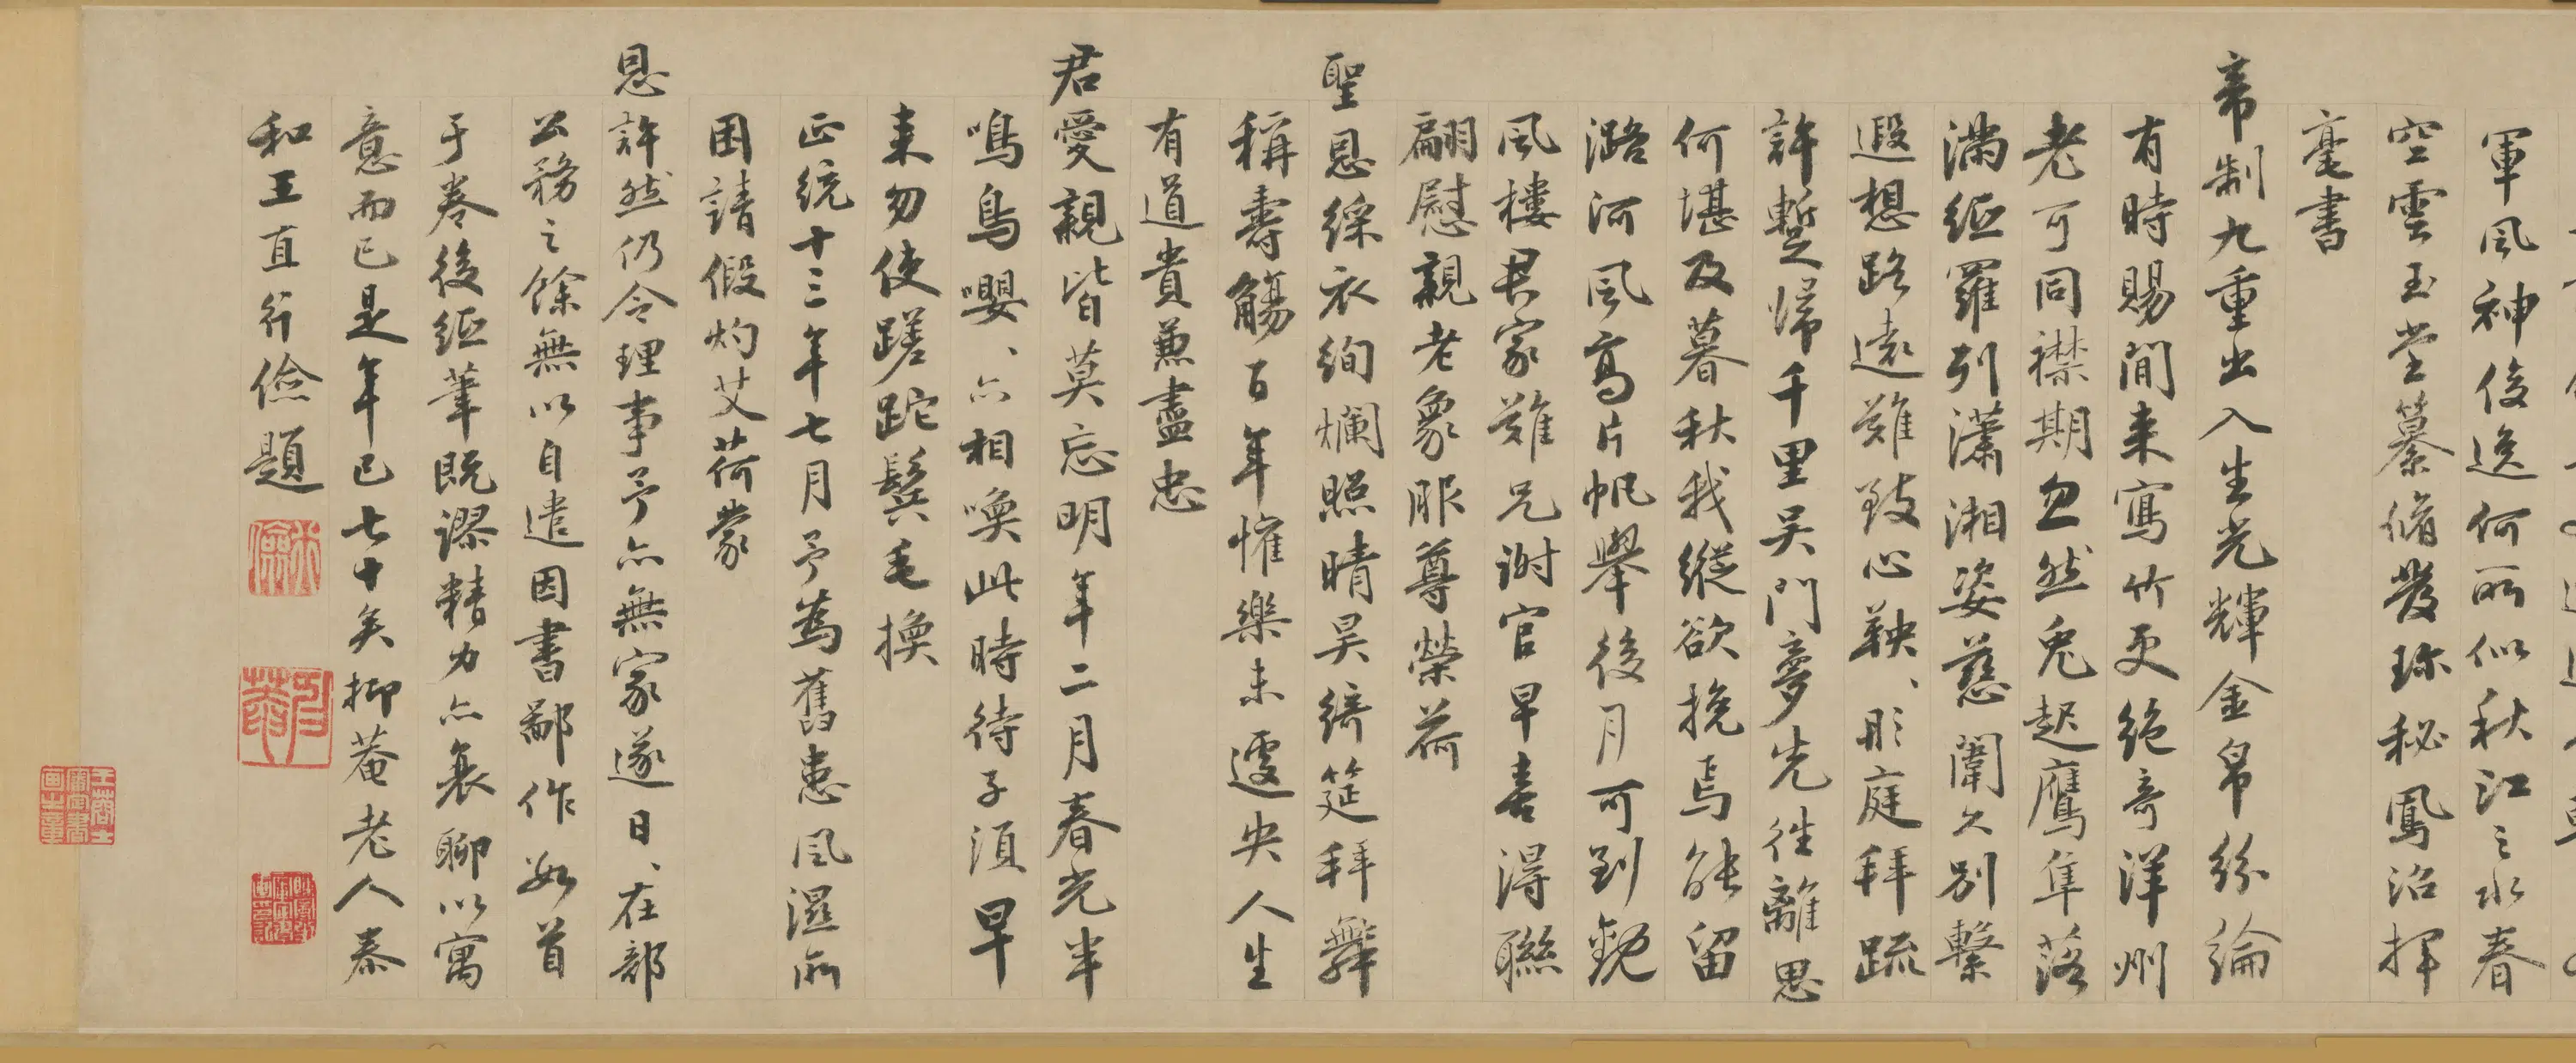 軍風神俊逸何所似秋江之水春
空雲玉堂纂脩發珎秘鳳沼揮
毫書
帝制九重出入生光輝金帛紛綸
有時賜閒來寫竹更絶奇洋州
老可同襟期忽然兎起鷹隼落
滿紙羅列瀟湘姿慈闈久別繫
遐想路遠難致心鞅、彤庭拜疏
許蹔歸千里吴門夢先徃離思
何堪及暮秋我縱欲挽焉能留
潞河風高片帆舉後月可到觀
風樓君家難兄謝官早喜得聯
翩慰親老象服尊榮荷
聖恩綵衣絢爛照晴昊綺筵拜舞
稱壽觴百年懽樂未遽央人生
有道貴兼盡忠
君愛親皆莫忘明年二月春光半
鳴鳥嚶、亦相喚此時待子須早
來勿使蹉跎鬢毛換
正統十三年七月予為舊患風濕所
困請假灼艾荷蒙
恩許然仍令理事予亦無家遂日、在部
公務之餘無以自遣因書鄙作數首
于卷後紙筆既謬精力亦衰聊以寓
意而已是年年已七十矣抑菴老人泰
和王直行儉題